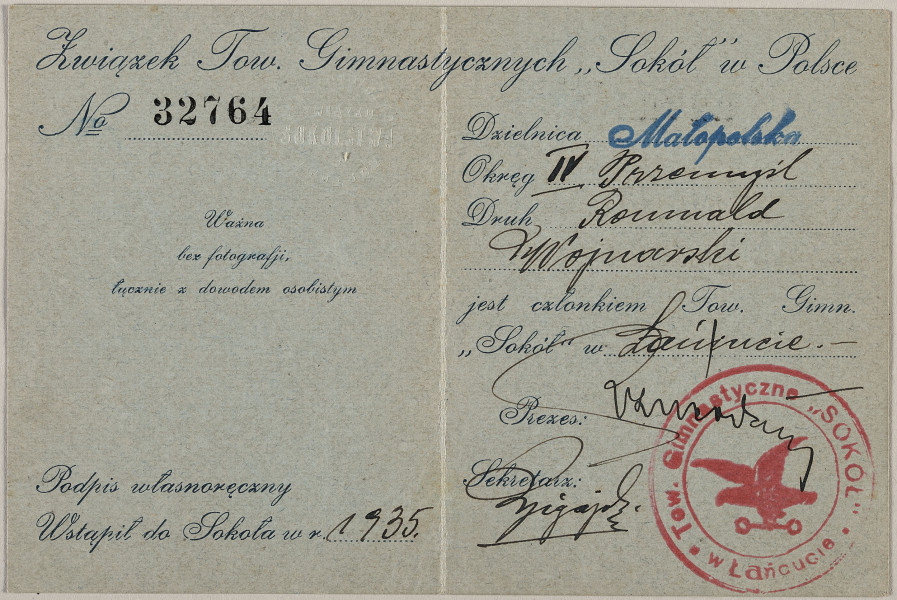 Związek Tow. Gimnastycznych „Sokół" w Polsce
No 32764
Ważna
bez fotografji,
łącznie z dowodem osobistym
Podpis własnoręczny
Wstąpił do Sokoła w r. 1935.
Dzielnica Małopolska
Okręg IV Przemyśl
Druh Romuald
Wojnarski
jest członkiem Tow. Gimn.
„Sokół" w Łańcucie.—
Prezes:
Sekretarz:
Tow. Gimnastyczne „SOKÓŁ"
w Łańcucie